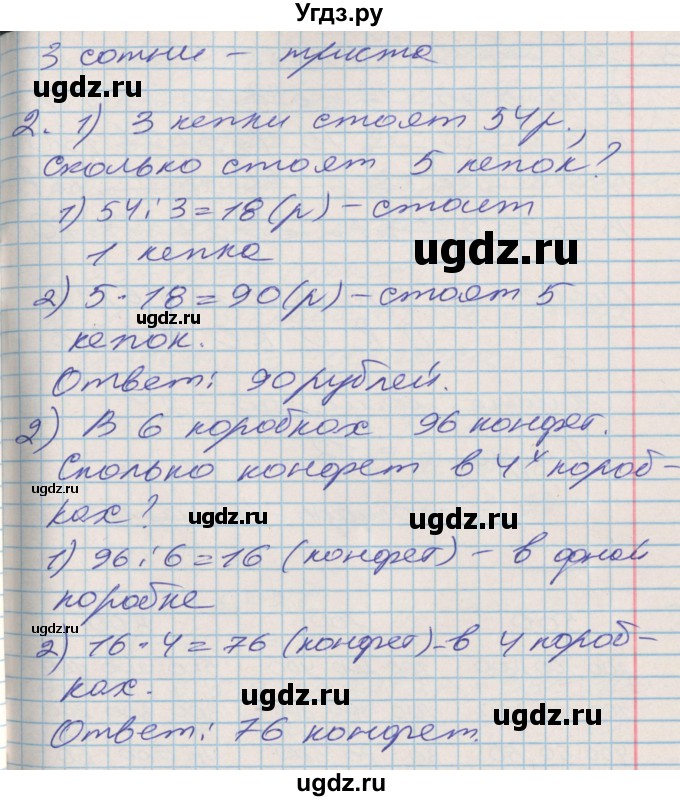 Угдз.ру
3 сотни – триста
ugdz.ru
2. 1) 3 кепки стоят 54 р.,
сколько стоят 5 кепок?
1) 54 : 3 = 18 (р) – стоит
1 кепка
ugdz.ru
2) 5 · 18 = 90 (р) – стоят 5
ugdz.ru
кепок.
Ответ: 90 рублей.
2) В 6 коробках 96 конфет.
Сколько конфет в 4х короб-
ugdz.ru
ках?
ugdz.ru ugdz.ru
1) 96 : 6 = 16 (конфет) – в одной
коробке
ugdz.ru
2) 16 · 4 = 76 (конфет) – в 4 короб-
ках.
ugdz.ru ugdz.ru
Ответ: 76 конфет.
ugdz.ru